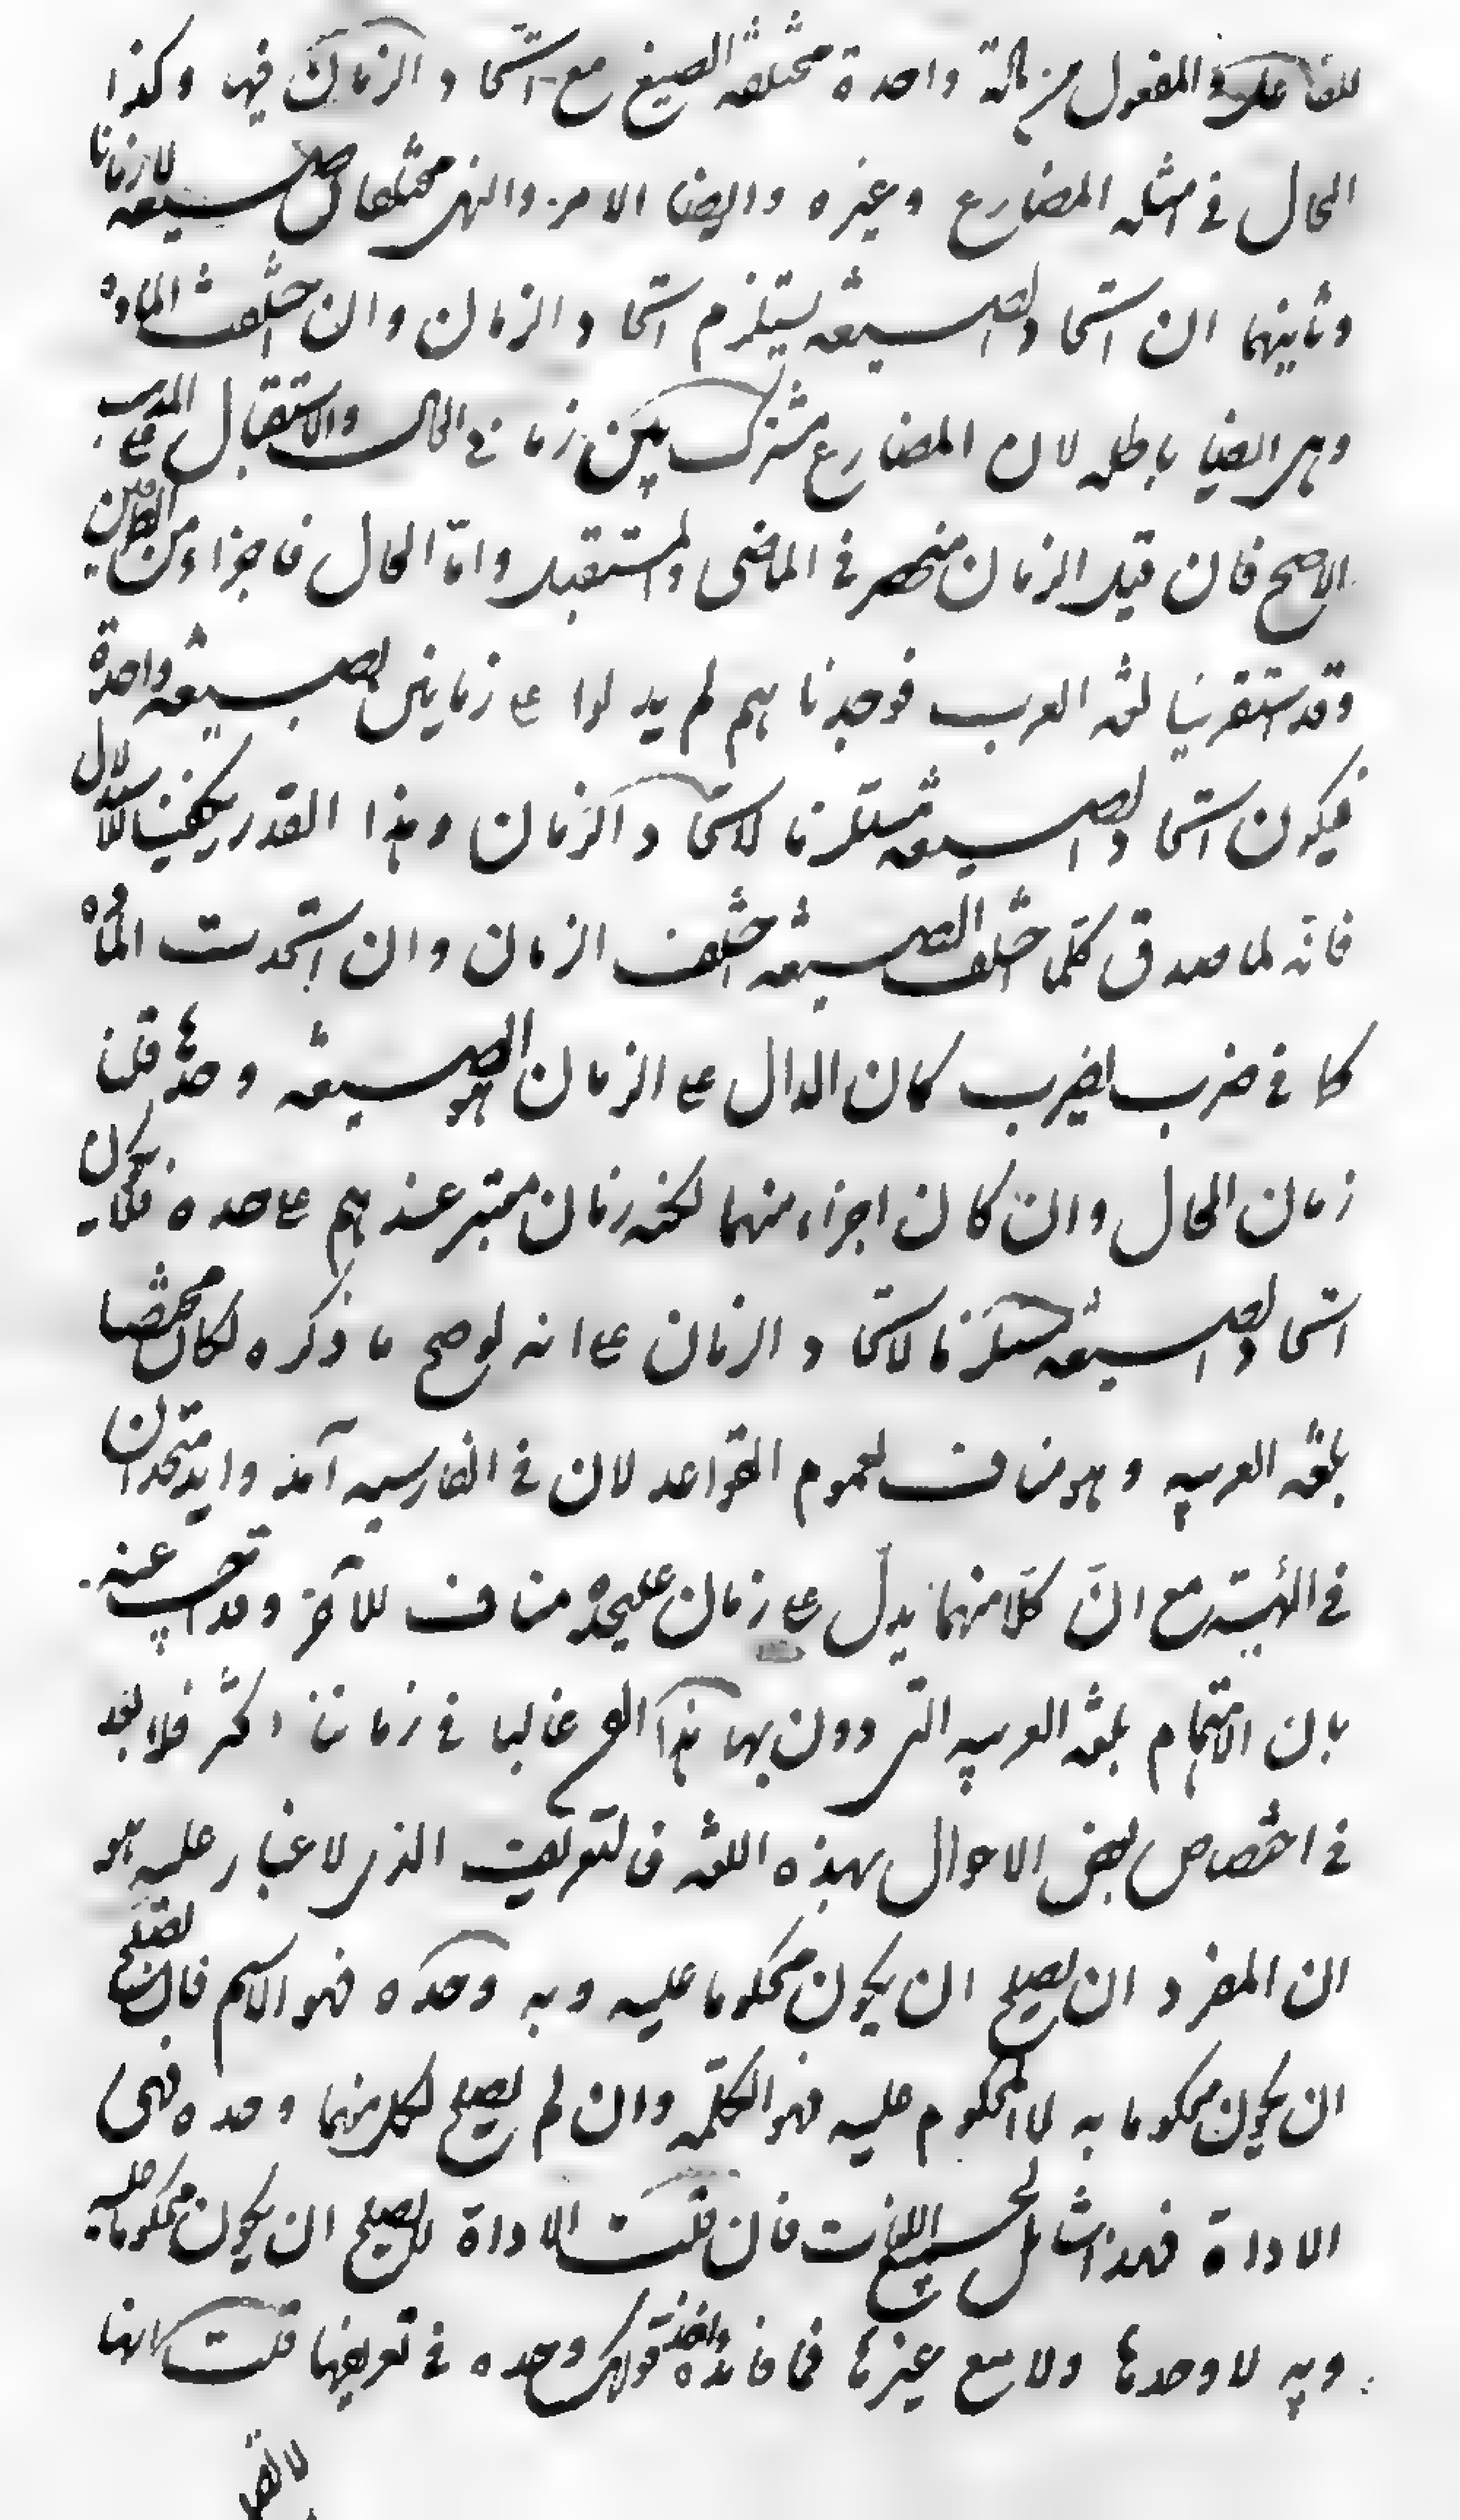 للفاعل والمفعول من مادة واحدة مختلفة الصيغ مع اتحاد الزمان فيها وكذا
الحال في امثلة المضارع وغيره وايضا الامر والنهي مختلفان صيغة لا زمانا
وثانيهما ان اتحاد الصيغة يستلزم اتحاد الزمان وان اختلفت المادة
وهي ايضا باطلة لان المضارع مشترك بين زماني الحال والاستقبال على المذهب
الاصح فان قيل الزمان منحصر في الماضي والمستقبل واما الحال فاجزاء من الطرفين
وقد استقرينا لغة العرب فوجدناهم لم يدلوا على زمانين بصيغة واحدة
فيكون اتحاد الصيغة مستلزما لاتحاد الزمان وهذا القدر يكفينا للاستدلال
فانه لما صدق كلما اختلف الصيغة اختلف الزمان وان اتحدت المادة
كما في ضرب يضرب كان الدال على الزمان هو الصيغة وحدها قلنا
زمان الحال وان كان اجزاء منهما لكنه زمان معتبر عندهم على حده فلا يكون
اتحاد الصيغة مستلزما لاتحاد الزمان على انه لو صح ما ذكره لكان مختصا
بلغة العربية وهو مناف لعموم القواعد لان في الفارسية آمد وايد متحدان
في الهيئة مع ان كلا منهما يدل على زمان عليحدة مناف للآخر وقد اجيب عنه
بان الاهتمام بلغة العربية التي دون بها هذا العلم غالبا في زماننا اكثر فلا بعد
في اختصاص بعض الاحوال بهذه اللغة فالتعريف الذي لا غبار عليه هو
ان المفرد ان يصلح ان يكون محكوما عليه وبه وحده فهو الاسم فان يصلح
ان يكون محكوما به لا المحكوم عليه فهو الكلمة وان لم يصلح لكل منهما وحده فهي
الاداة فهذا شامل لجميع اللغات فان قلت الاداة لا يصلح ان يكون محكوما عليه
وبه لا وحدها ولا مع غيرها فما فائدة قولك وحده في تعريفها قلت انها